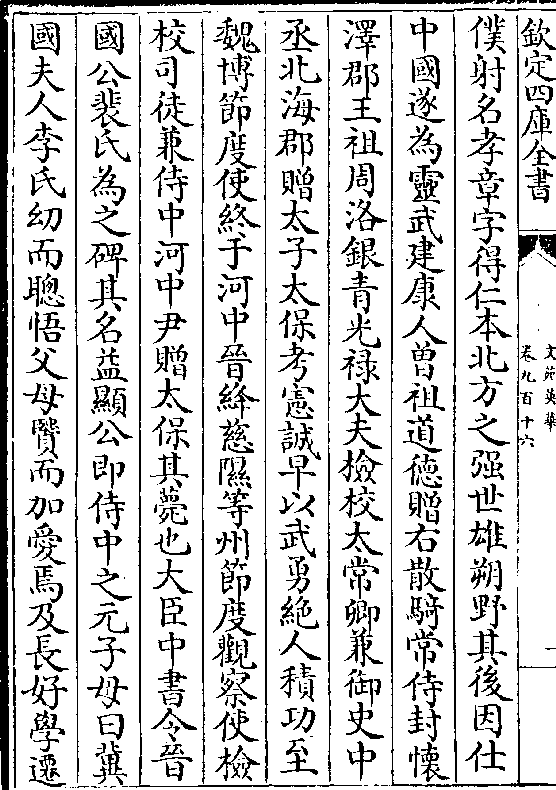 欽定四庫全書
文苑英華
卷九百十六
一
僕射名孝章字得仁本北方之强世雄朔野其後因仕
中國遂為靈武建康人曽祖道徳贈右散騎常侍封懷
澤郡王祖周洛銀青光禄大夫檢校太常卿兼御史中
丞北海郡贈太子太保考憲誠早以武勇絶人積功至
魏博節度使終于河中晉絳慈隰等州節度觀察使檢
校司徒兼侍中河中尹贈太保其薨也大臣中書令晉
國公裴氏為之碑其名益顯公即侍中之元子母曰冀
國夫人李氏幼而聰悟父母贒而加愛焉及長好學遷